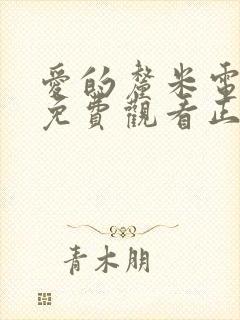 愛的釐米電
免費觀看正
青木朋